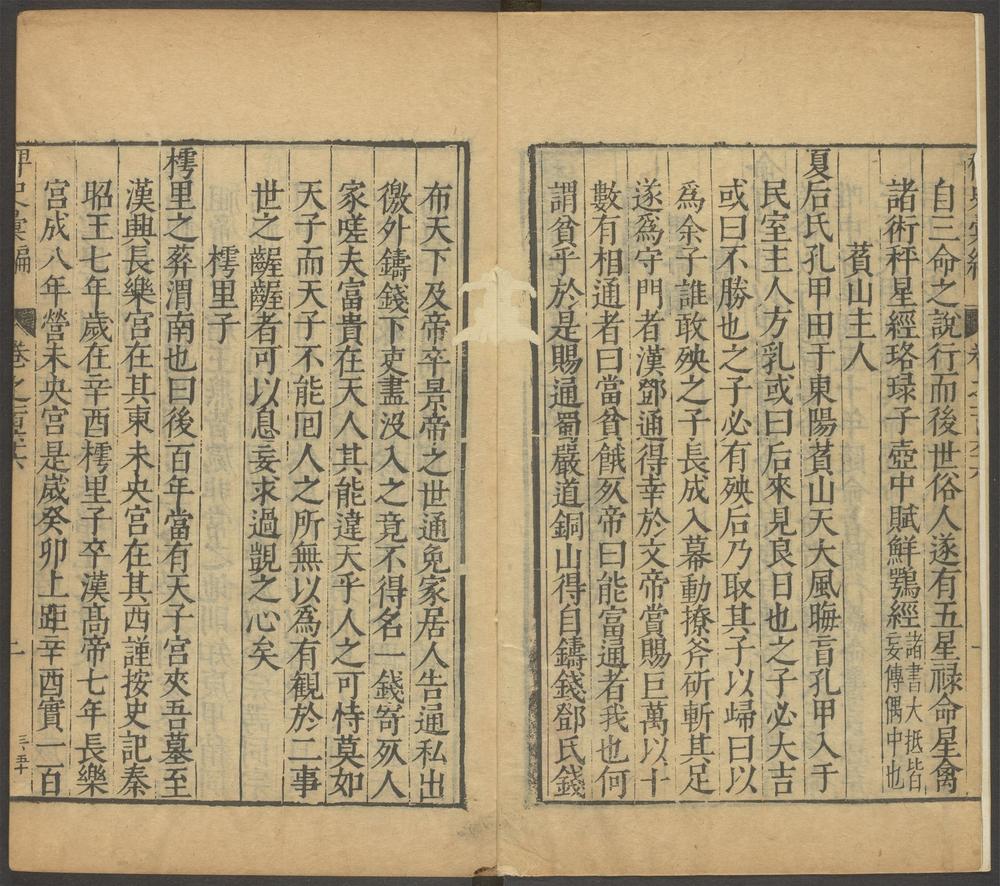 自三命之說行而後世俗人遂有五星祿命星禽
諸術秤星經珞琭子壺中賦鮮鶚經諸書大抵皆妄傳偶中也
萯山主人
夏后氏孔甲田于東陽萯山天大風晦盲孔甲入于
民室主人方乳或曰后來見良日也之子必大吉
或曰不勝也之子必有殃后乃取其子以歸曰以
爲余子誰敢殃之子長成入幕動撩斧斫斬其足
遂爲守門者漢鄧通得幸於文帝賞賜巨萬以十
數有相通者曰當貧餓死帝曰能富通者我也何
謂貧乎於是賜通蜀嚴道銅山得自鑄錢鄧氏錢
布天下及帝卒景帝之世通免家居人告通私出
徼外鑄錢下吏盡沒入之竟不得名一錢寄死人
家嗟夫富貴在天人其能違天乎人之可恃莫如
天子而天子不能回人之所無以爲有観於二事
世之齷齪者可以息妄求過覬之心矣
樗里子
樗里之葬渭南也曰後百年當有天子宮夾吾墓至
漢興長樂宮在其東未央宮在其西謹按史記秦
昭王七年歲在辛酉樗里子卒漢髙帝七年長樂
宮成八年營未央宮是歲癸卯上距辛酉實一百
稗史彙編
卷之